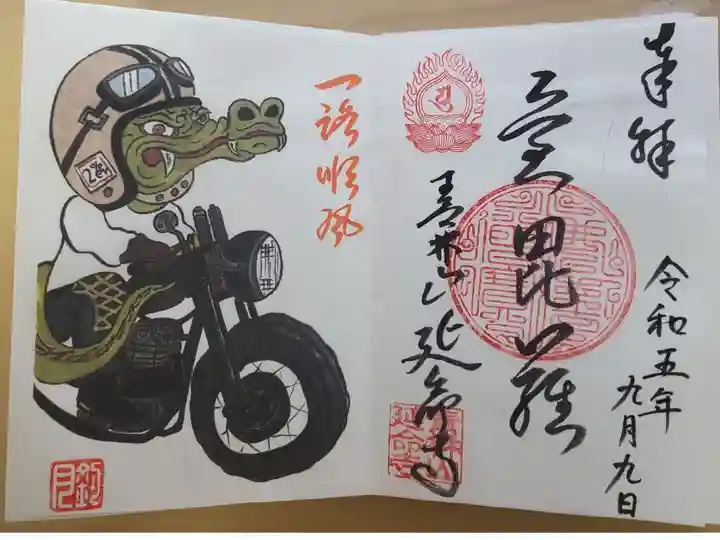 奉拝
宮毘羅
青林山 延命寺
令和五年
九月九日
一路順風